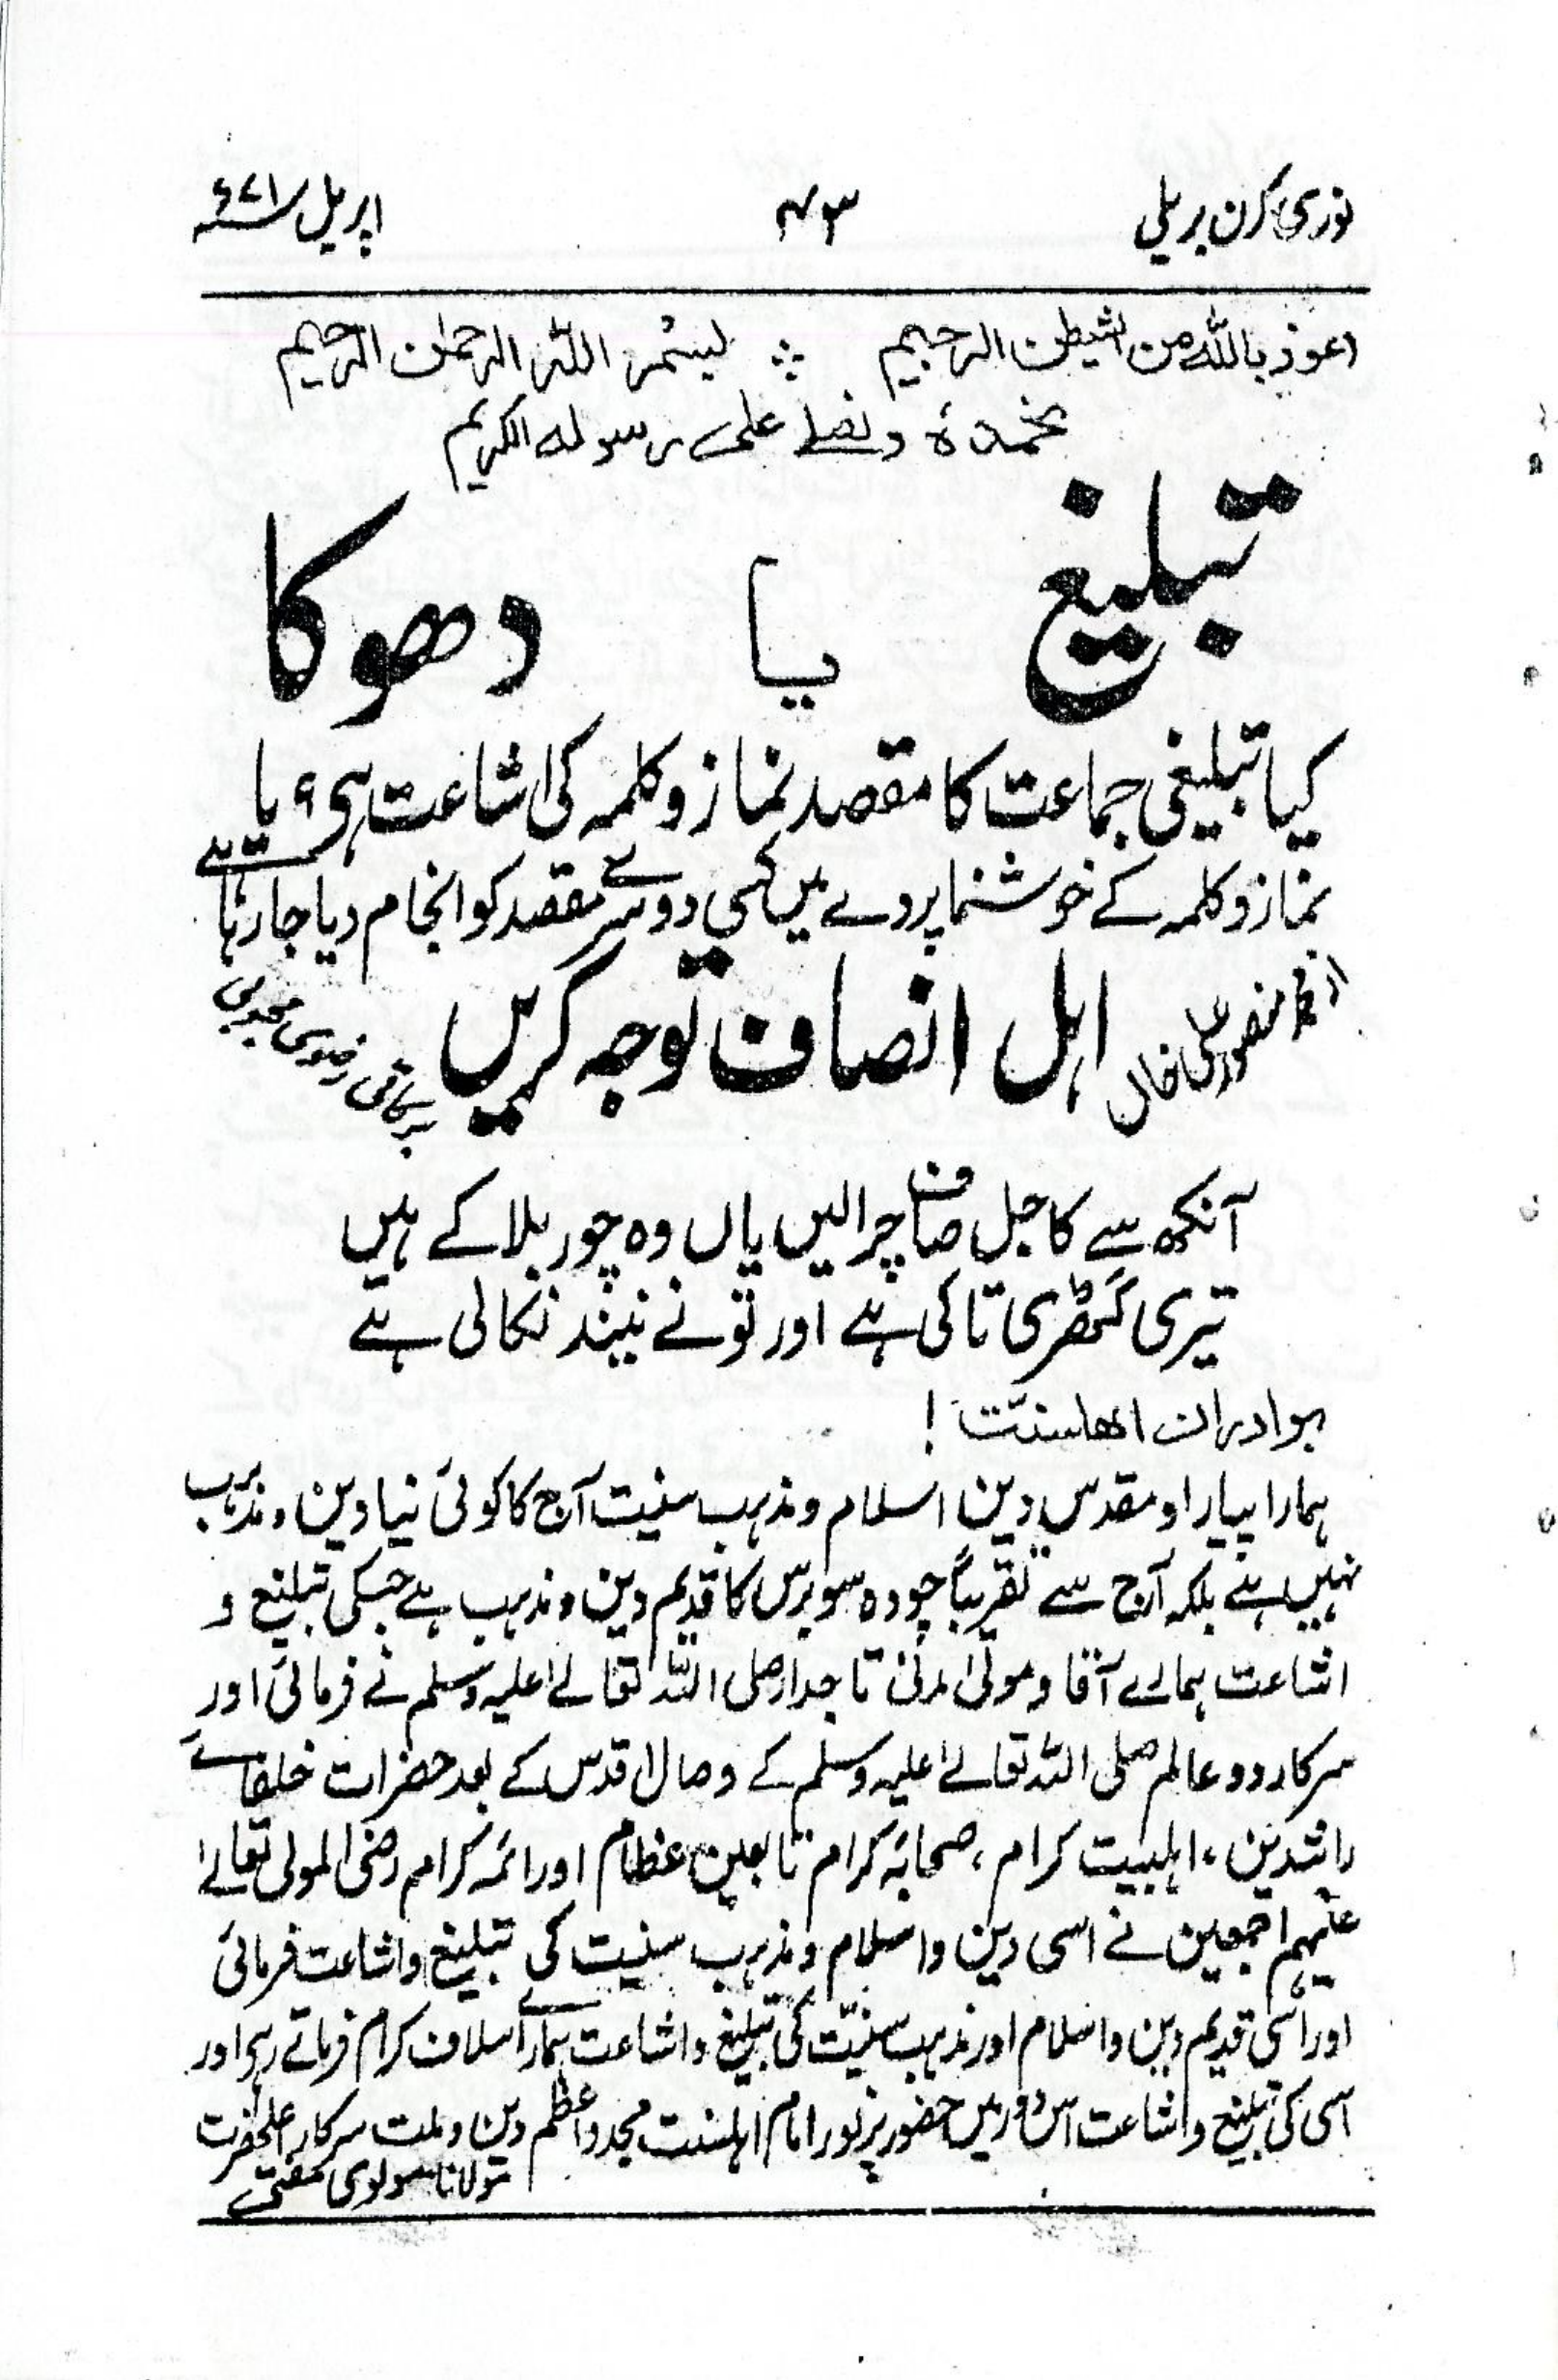 نوری کرن بریلی ۴۳ اپریل ۷۱ء
اعوذ باللہ من الشیطن الرجیم ∴ بسم اللہ الرحمٰن الرحیم
نحمدہٗ و نصلے علےٰ رسولہ الکریم
تبلیغ یا دھوکا
کیا تبلیغی جماعت کا مقصد نماز و کلمہ کی اشاعت ہی ؟ یا
نماز و کلمہ کے خوشنما پردے میں کسی دوسرے مقصد کو انجام دیا جارہا ہے
از محمد منصور علی خاں
اہل انصاف توجہ کریں
برکاتی رضوی محبوبی
آنکھ سے کاجل صاف چرالیں یاں وہ چور بلا کے ہیں
تیری گٹھری تاکی ہے اور تو نے نیند نکالی ہے
برادران اھلسنت !
ہمارا پیارا و مقدس دین اسلام و مذہب سنیت آج کا کوئی نیا دین و مذہب
نہیں ہے بلکہ آج سے تقریباً چودہ سو برس کا قدیم دین و مذہب ہے جسکی تبلیغ و
اشاعت ہمارے آقا و مولیٰ مدنی تاجدار صلی اللہ تعالےٰ علیہ وسلم نے فرمائی اور
سرکار دو عالم صلی اللہ تعالےٰ علیہ وسلم کے وصال اقدس کے بعد حضرات خلفائے
راشدین ، اہلبیت کرام ، صحابۂ کرام تابعین عظام اور ائمہ کرام رضی المولی تعالےٰ
علیہم اجمعین نے اسی دین و اسلام و مذہب سنیت کی تبلیغ و اشاعت فرمائی
اور اسی قدیم دین و اسلام اور مذہب سنیّت کی تبلیغ و اشاعت ہمارے اسلاف کرام فرماتے رہی اور
اسی کی تبلیغ و اشاعت اس دور میں حضور پر نور امام اہلسنت مجدد اعظم دین و ملت سرکار اعلحضرت
مولانا مولوی مفتی